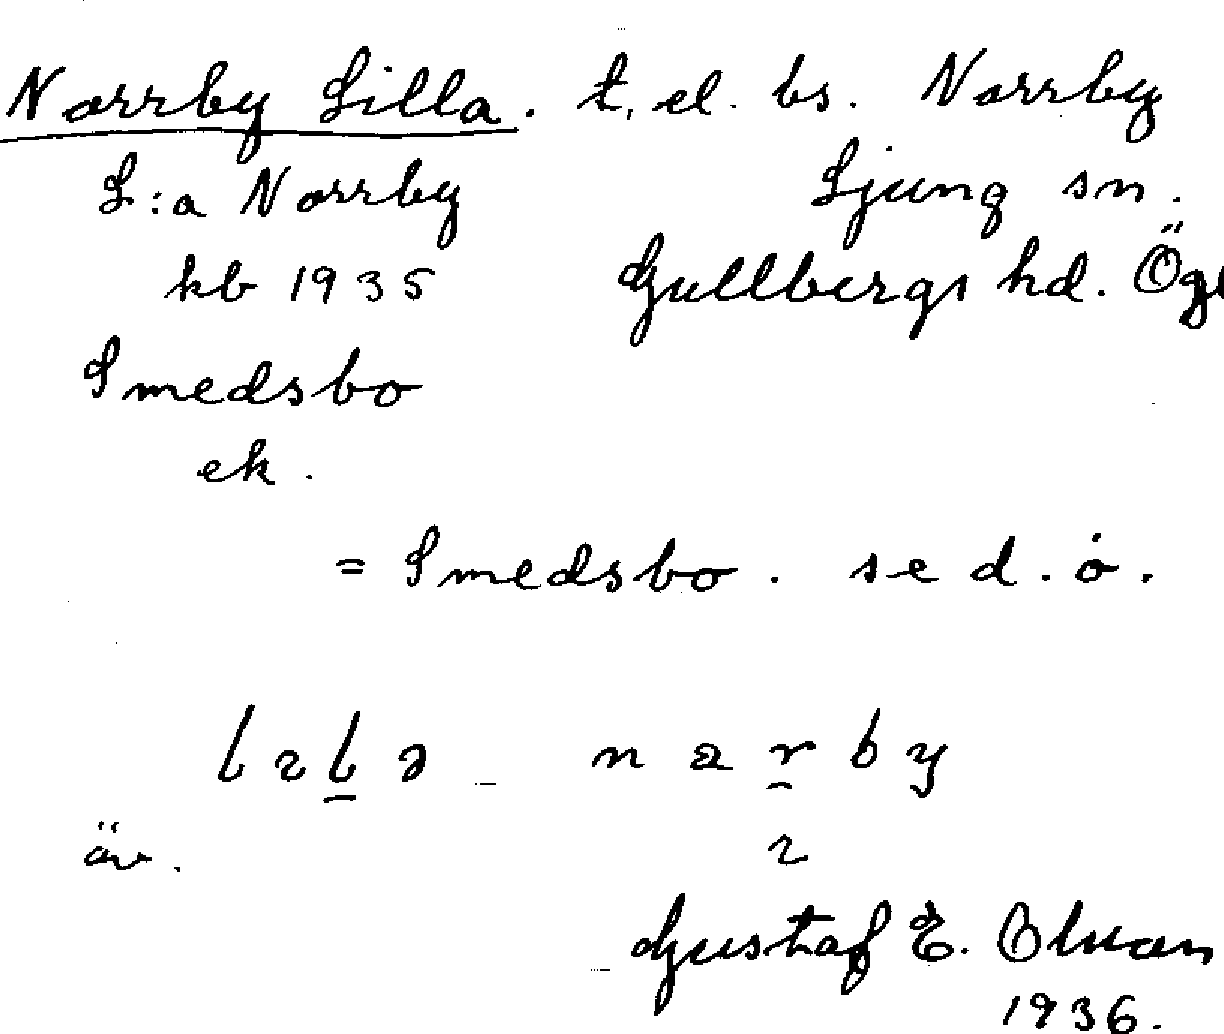 Norrby Lilla. t. el. bs. Norrby
L:a Norrby Ljung sn.
kb 1935 Gullbergs hd. Ögl
Smedsbo
ek.
= Smedsbo. se d. o.
äv.
Gustaf E. Olsson
1936.